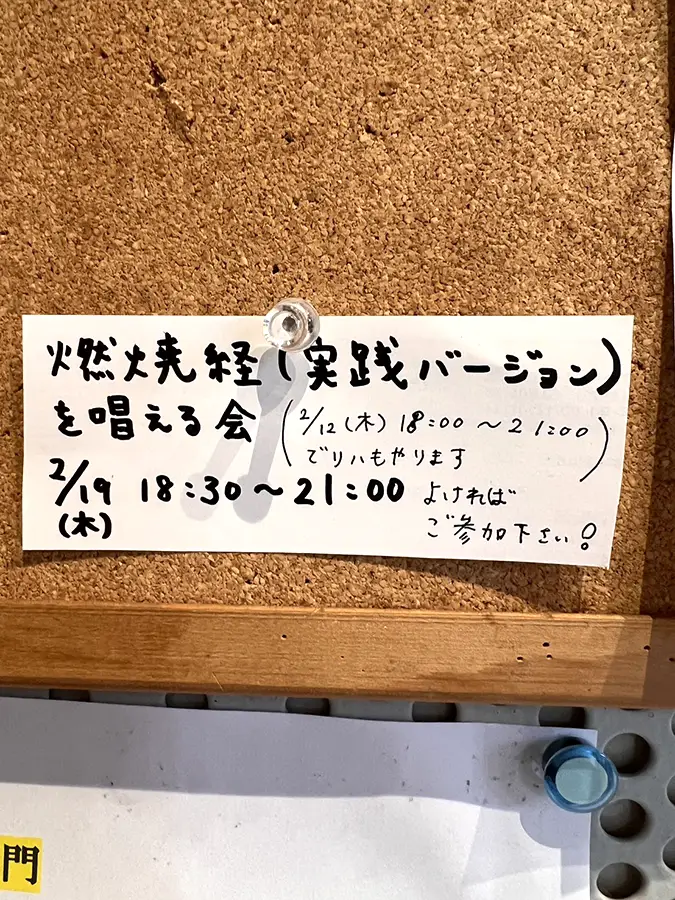 燃焼経(実践バージョン)
を唱える会
(2/12(木) 18:00〜21:00
でリハもやります)
2/19 18:30〜21:00
(木)
よければ
ご参加下さい!
門